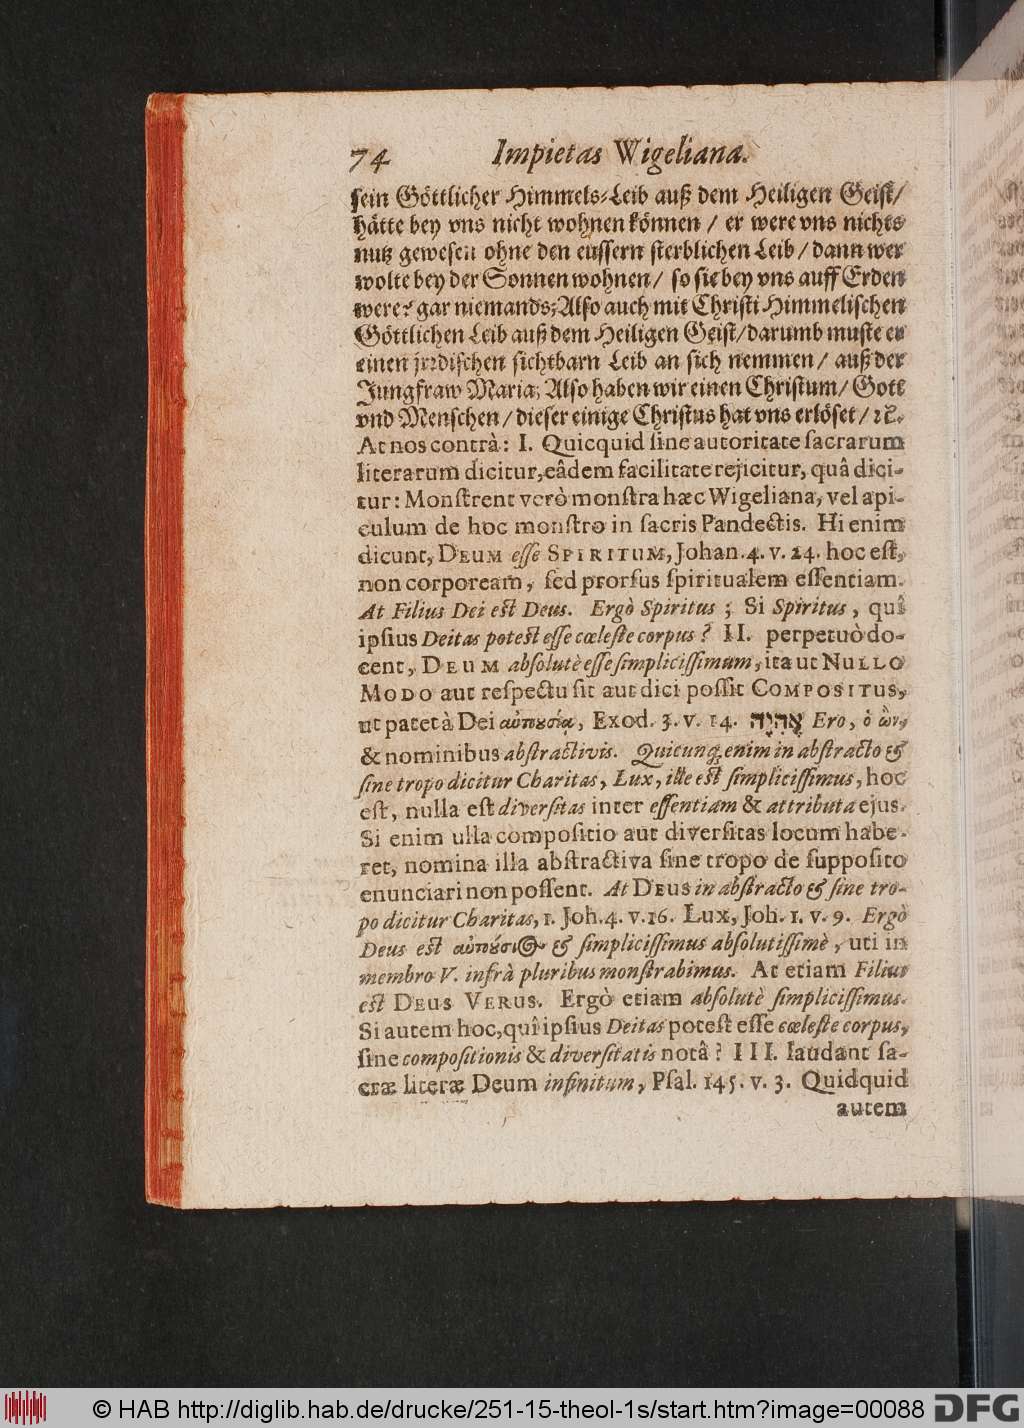 74 Impietas Wigeliana.
sein Göttlicher Himmels-Leib auß dem Heiligen Geist/
hätte bey vns nicht wohnen können / er were vns nichts
nutz gewesen ohne den eussern sterblichen Leib / dann wer
wolte bey der Sonnen wohnen / so sie bey vns auff Erden
were? gar niemands; Also auch mit Christi Himmelischen
Göttlichen Leib auß dem Heiligen Geist/darumb muste er
einen jrrdischen sichtbarn Leib an sich nemmen / auß der
Jungfraw Maria; Also haben wir einen Christum/ Gott
vnd Menschen / dieser einige Christus hat vns erlöset / ꝛc.
At nos contrà: I. Quicquid sine autoritate sacrarum
literarum dicitur, eâdem facilitate rejicitur, quâ dici-
tur: Monstrent verò monstra hæc Wigeliana, vel api-
culum de hoc monstro in sacris Pandectis. Hi enim
dicunt, DEUM esse SPIRITUM, Johan. 4. v. 24. hoc est,
non corpoream, sed prorsus spiritualem essentiam.
At Filius Dei est Deus. Ergò Spiritus ; Si Spiritus, quî
ipsius Deitas potest esse cœleste corpus? II. perpetuò do-
cent, DEUM absolutè esse simplicissimum, ita ut NULLO
MODO aut respectu sit aut dici possit COMPOSITUS,
ut patet à Dei αὐτουσίᾳ, Exod. 3. v. 14. אֶהְיֶה Ero, ὁ ὢν,
& nominibus abstractivis. Quicunq; enim in abstracto &
sine tropo dicitur Charitas, Lux, ille est simplicissimus, hoc
est, nulla est diversitas inter essentiam & attributa ejus.
Si enim ulla compositio aut diversitas locum habe-
ret, nomina illa abstractiva sine tropo de supposito
enunciari non possent. At DEUS in abstracto & sine tro-
po dicitur Charitas, 1. Joh. 4. v. 16. Lux, Joh. 1. v. 9. Ergò
Deus est αὐτούσιος & simplicissimus absolutissimè, uti in
membro V. infrà pluribus monstrabimus. At etiam Filius
est DEUS VERUS. Ergò etiam absolutè simplicissimus.
Si autem hoc, quî ipsius Deitas potest esse cœleste corpus,
sine compositionis & diversitatis notâ? III. laudant sa-
cræ literæ Deum infinitum, Psal. 145. v. 3. Quidquid
autem
© HAB http://diglib.hab.de/drucke/251-15-theol-1s/start.htm?image=00088 DFG